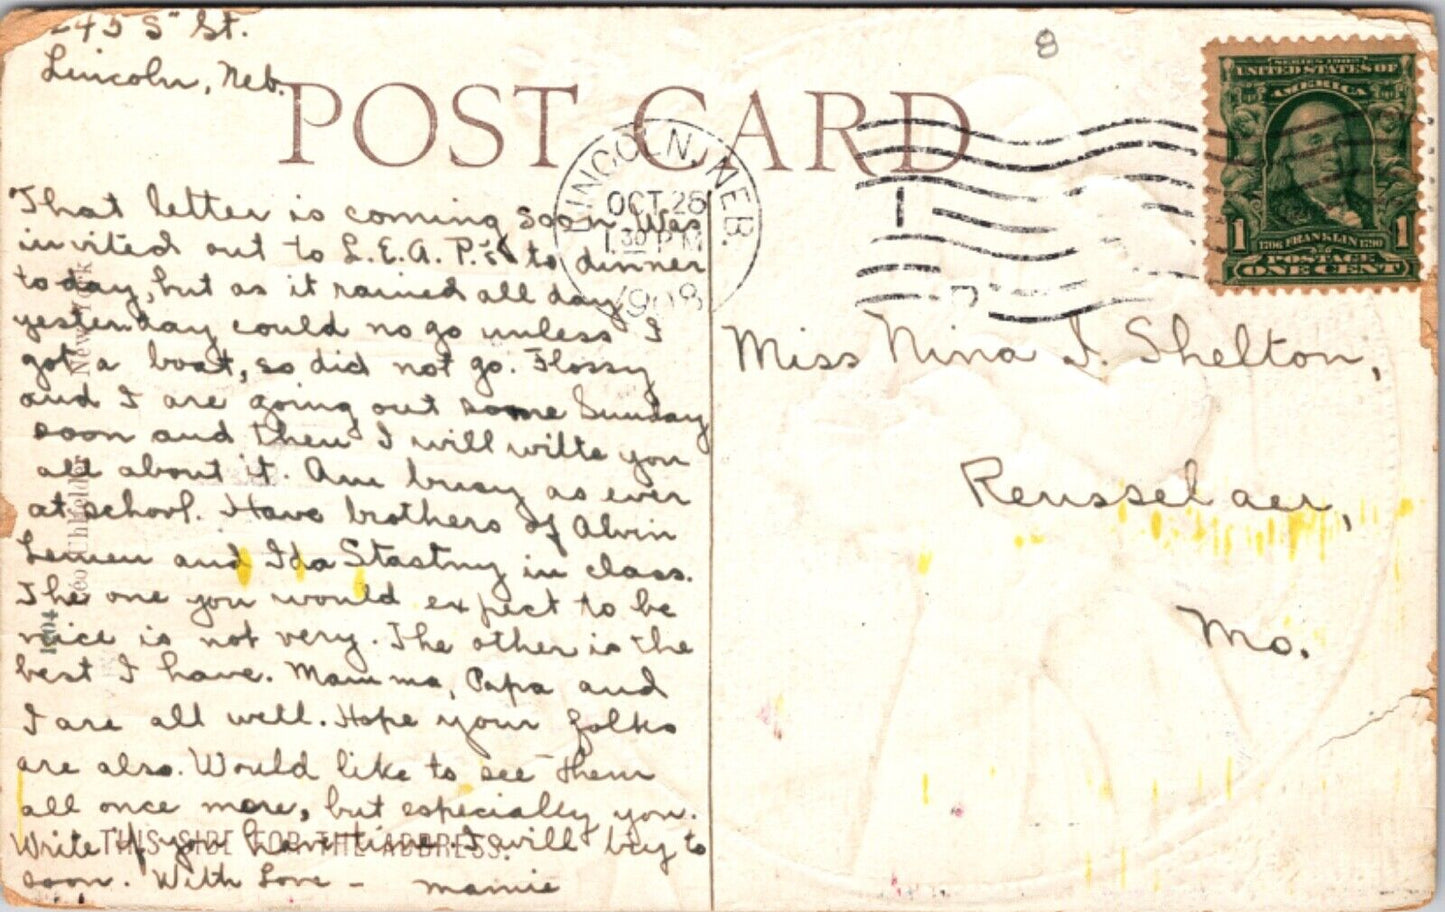 245 S" St.
Lincoln, Neb.
POST CARD
LINCOLN, NEB.
OCT 25
1 30 PM
1908
1
SERIES 1902
UNITED STATES OF
AMERICA
1 1706 FRANKLIN 1790 1
POSTAGE
ONE CENT
8
That letter is coming soon. Was
invited out to L.E.A.P.'s to dinner
to day, but as it rained all day
yesterday could no go unless I
got a boat, so did not go. Flossy
and I are going out some Sunday
soon and then I will write you
all about it. Am busy as ever
at school. Have brothers of Alvin
Lemen and Ida Stastny in class.
The one you would expect to be
nice is not very. The other is the
best I have. Mamma, Papa and
I are all well. Hope your folks
are also. Would like to see them
all once more, but especially you.
Write if you have time. I will try to
soon. With Love - Mamie
Miss Nina I. Shelton,
Rensselaer,
Mo.
THIS SIDE FOR THE ADDRESS.
New York